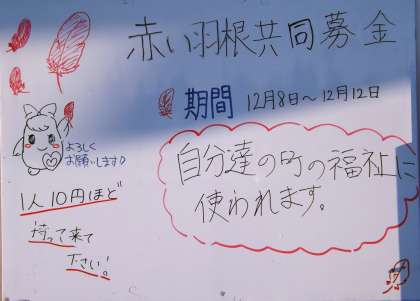 赤い羽根共同募金
期間 12月8日～12月12日
よろしく
お願いします♪
自分達の町の福祉に
使われます。
1人10円ほど
持って来て
下さい。